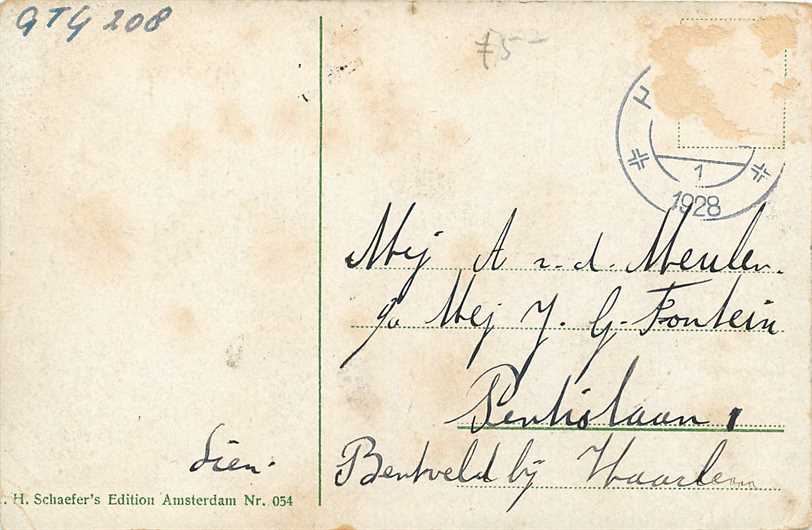 GTG 208
75-
1
1928
Mej A v. d. Meulen.
p/a Mej J. G. Fontein
1
Bentveld bij Haarlem
Sien.
. H. Schaefer's Edition Amsterdam Nr. 054